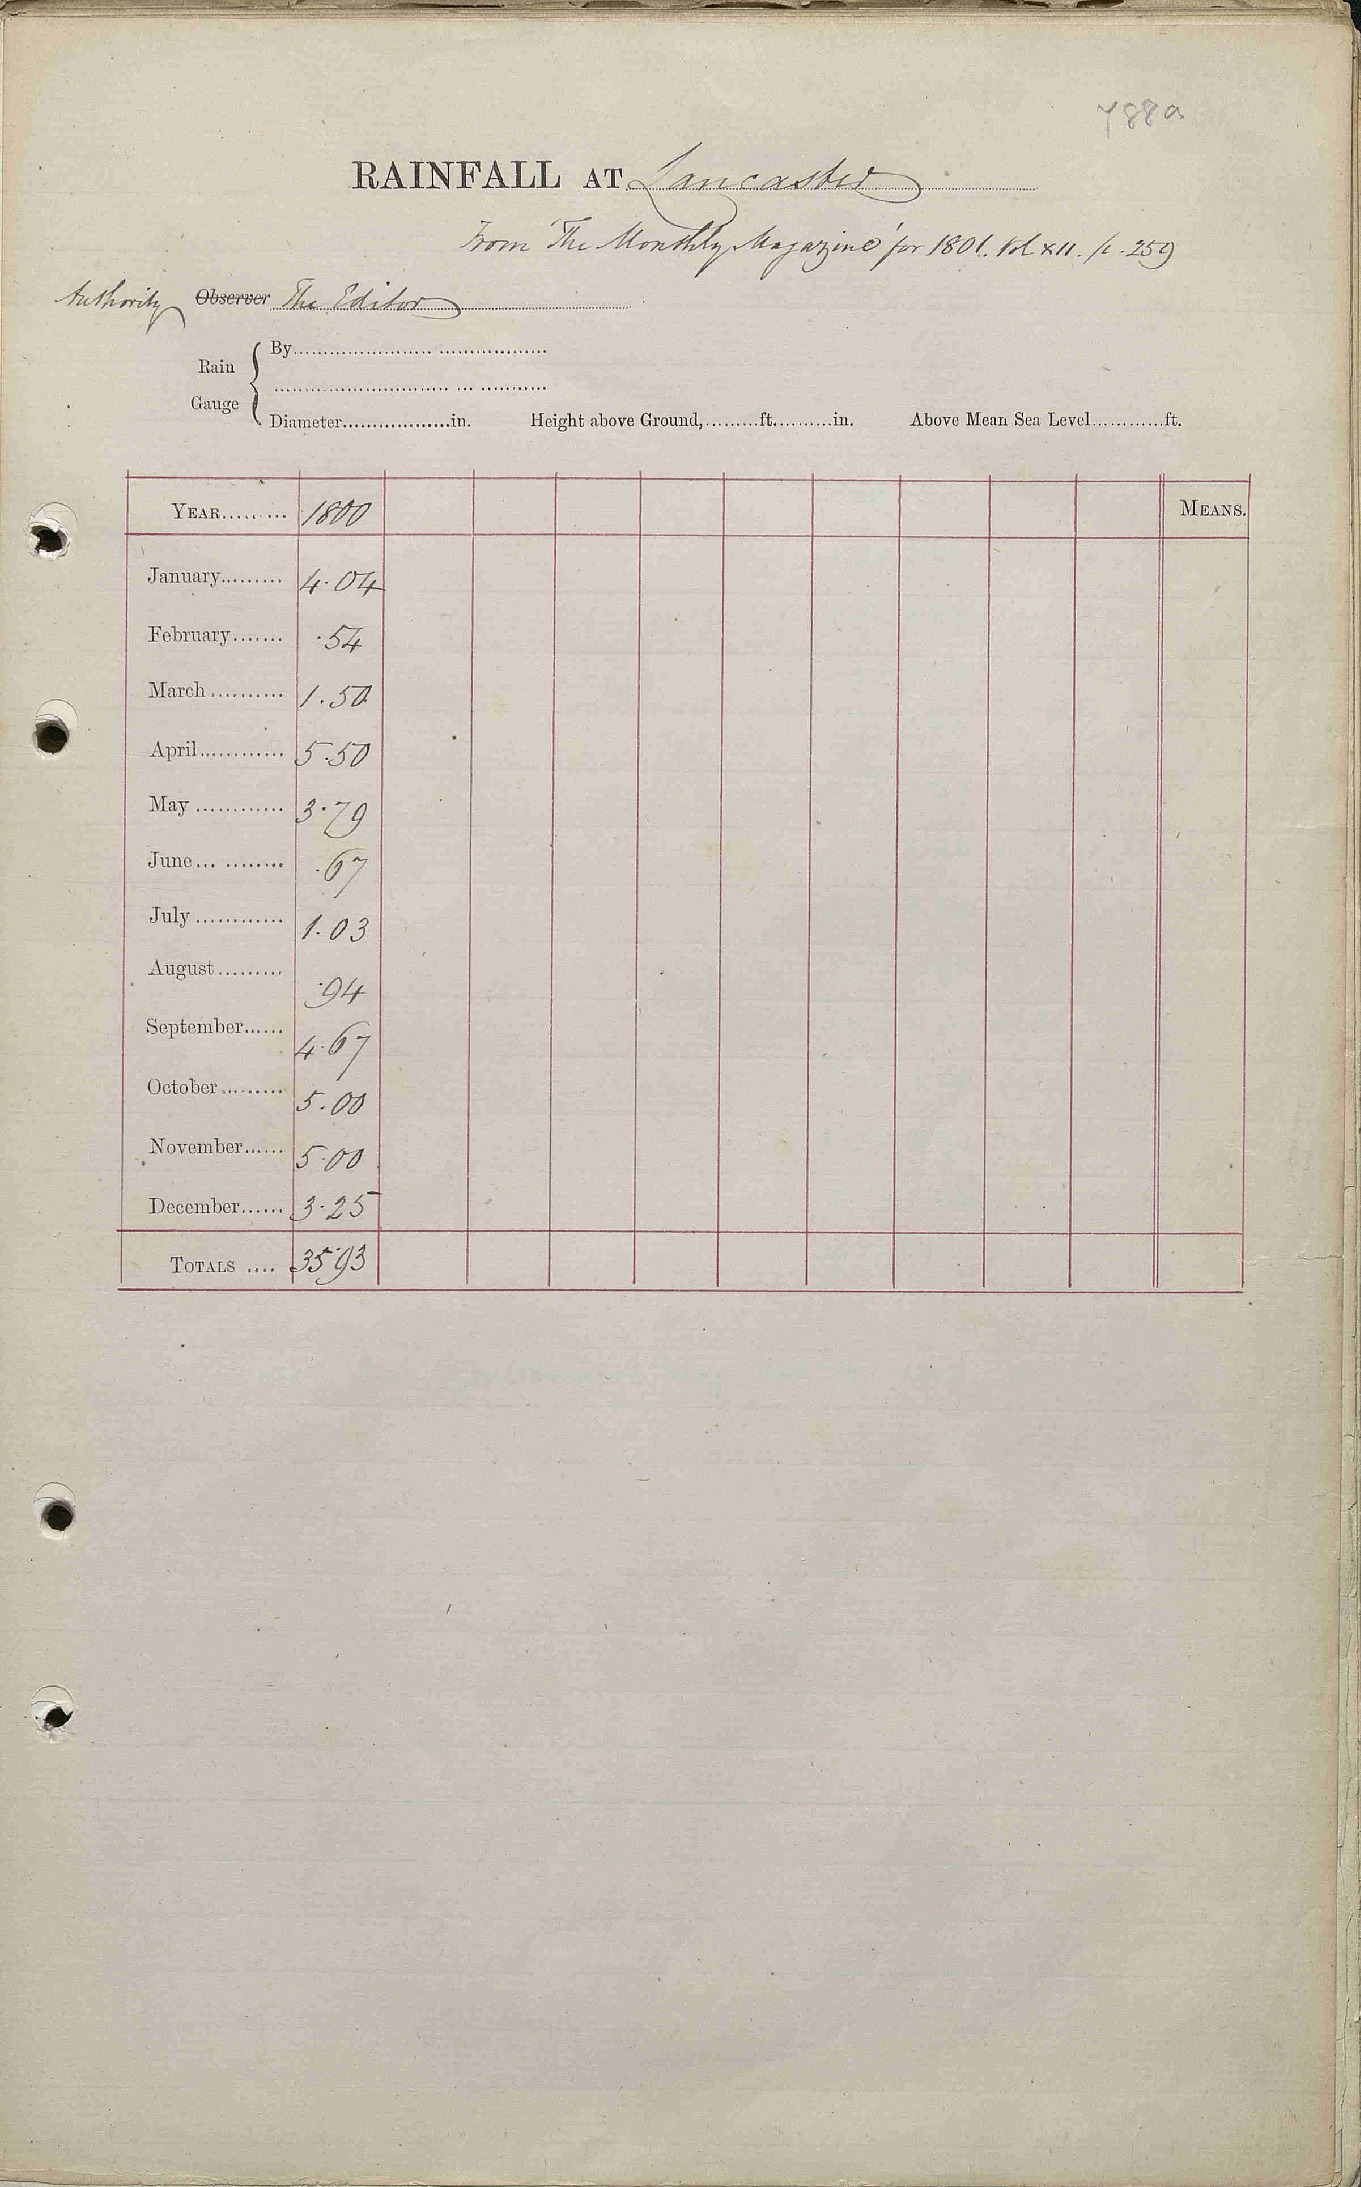 788a
RAINFALL AT Lancaster
From 'The Monthly Magazine' for 1801. Vol XII. p. 259
Authority Observer The Editor
Rain Gauge
By
Diameter..................in. Height above Ground,.........ft..........in. Above Mean Sea Level............ft.
YEAR......... 1800 MEANS.
January......... 4.04
February....... .54
March.......... 1.50
April............ 5.50
May............ 3.79
June............ .67
July............ 1.03
August......... .94
September...... 4.67
October......... 5.00
November...... 5.00
December...... 3.25
TOTALS .... 35.93